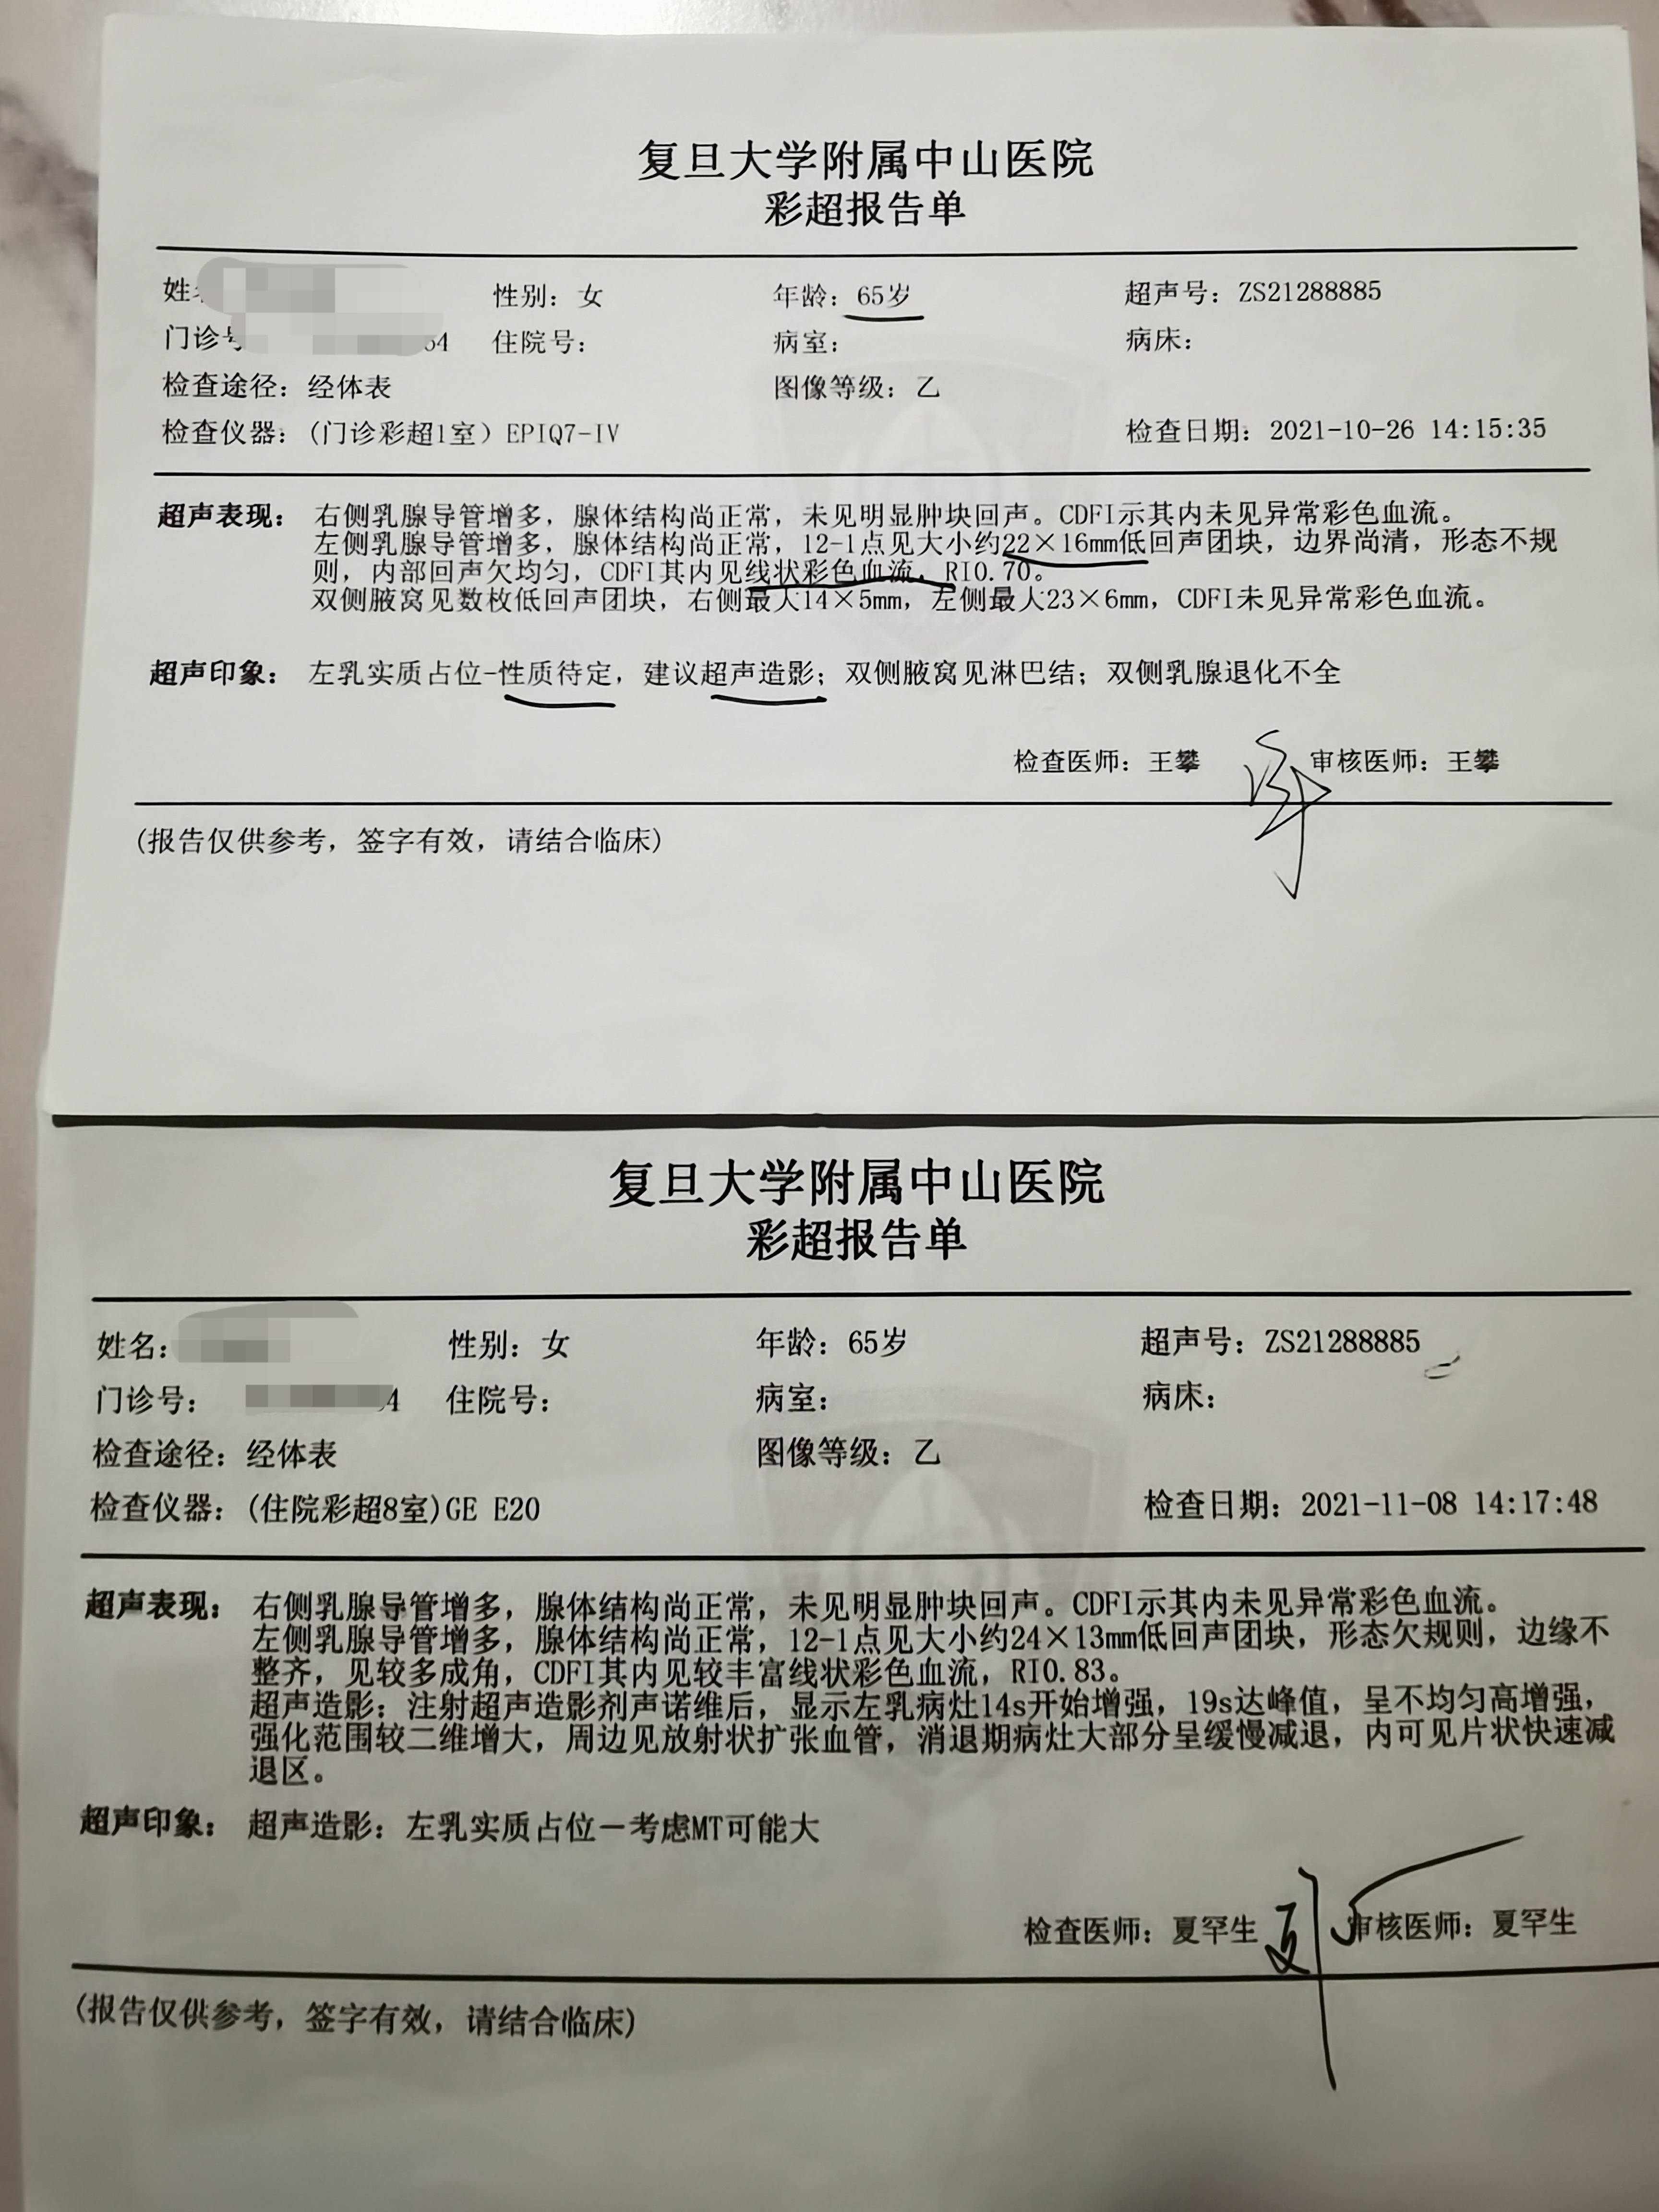 复旦大学附属中山医院
彩超报告单
姓 性别：女 年龄：65岁 超声号：ZS21288885
门诊号 64 住院号： 病室： 病床：
检查途径：经体表 图像等级：乙
检查仪器：(门诊彩超1室）EPIQ7-IV 检查日期：2021-10-26 14:15:35
超声表现：右侧乳腺导管增多，腺体结构尚正常，未见明显肿块回声。CDFI示其内未见异常彩色血流。
左侧乳腺导管增多，腺体结构尚正常，12-1点见大小约22×16mm低回声团块，边界尚清，形态不规
则，内部回声欠均匀，CDFI其内见线状彩色血流，RI0.70。
双侧腋窝见数枚低回声团块，右侧最大14×5mm，左侧最大23×6mm，CDFI未见异常彩色血流。
超声印象：左乳实质占位-性质待定，建议超声造影；双侧腋窝见淋巴结；双侧乳腺退化不全
检查医师：王攀 审核医师：王攀
(报告仅供参考，签字有效，请结合临床)
复旦大学附属中山医院
彩超报告单
姓名： 性别：女 年龄：65岁 超声号：ZS21288885
门诊号： 4 住院号： 病室： 病床：
检查途径：经体表 图像等级：乙
检查仪器：(住院彩超8室)GE E20 检查日期：2021-11-08 14:17:48
超声表现：右侧乳腺导管增多，腺体结构尚正常，未见明显肿块回声。CDFI示其内未见异常彩色血流。
左侧乳腺导管增多，腺体结构尚正常，12-1点见大小约24×13mm低回声团块，形态欠规则，边缘不
整齐，见较多成角，CDFI其内见较丰富线状彩色血流，RI0.83。
超声造影：注射超声造影剂声诺维后，显示左乳病灶14s开始增强，19s达峰值，呈不均匀高增强，
强化范围较二维增大，周边见放射状扩张血管，消退期病灶大部分呈缓慢减退，内可见片状快速减
退区。
超声印象：超声造影：左乳实质占位－考虑MT可能大
检查医师：夏罕生 审核医师：夏罕生
(报告仅供参考，签字有效，请结合临床)